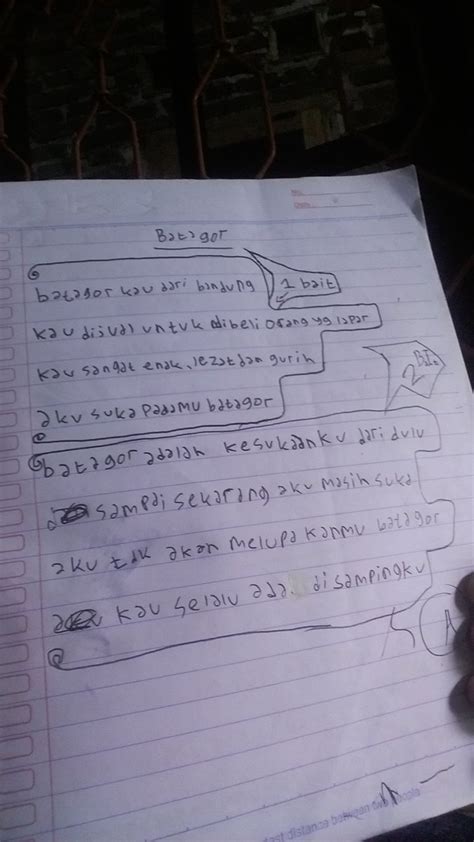 Batagor
batagor kau dari bandung
1 bait
kau dijual untuk dibeli orang yg lapar
kau sangat enak, lezat dan gurih
aku suka padamu batagor
2
batagor adalah kesukaanku dari dulu
sampai sekarang aku masih suka
aku tak akan melupakanmu batagor
kau selalu ada disampingku
A
distance between
people